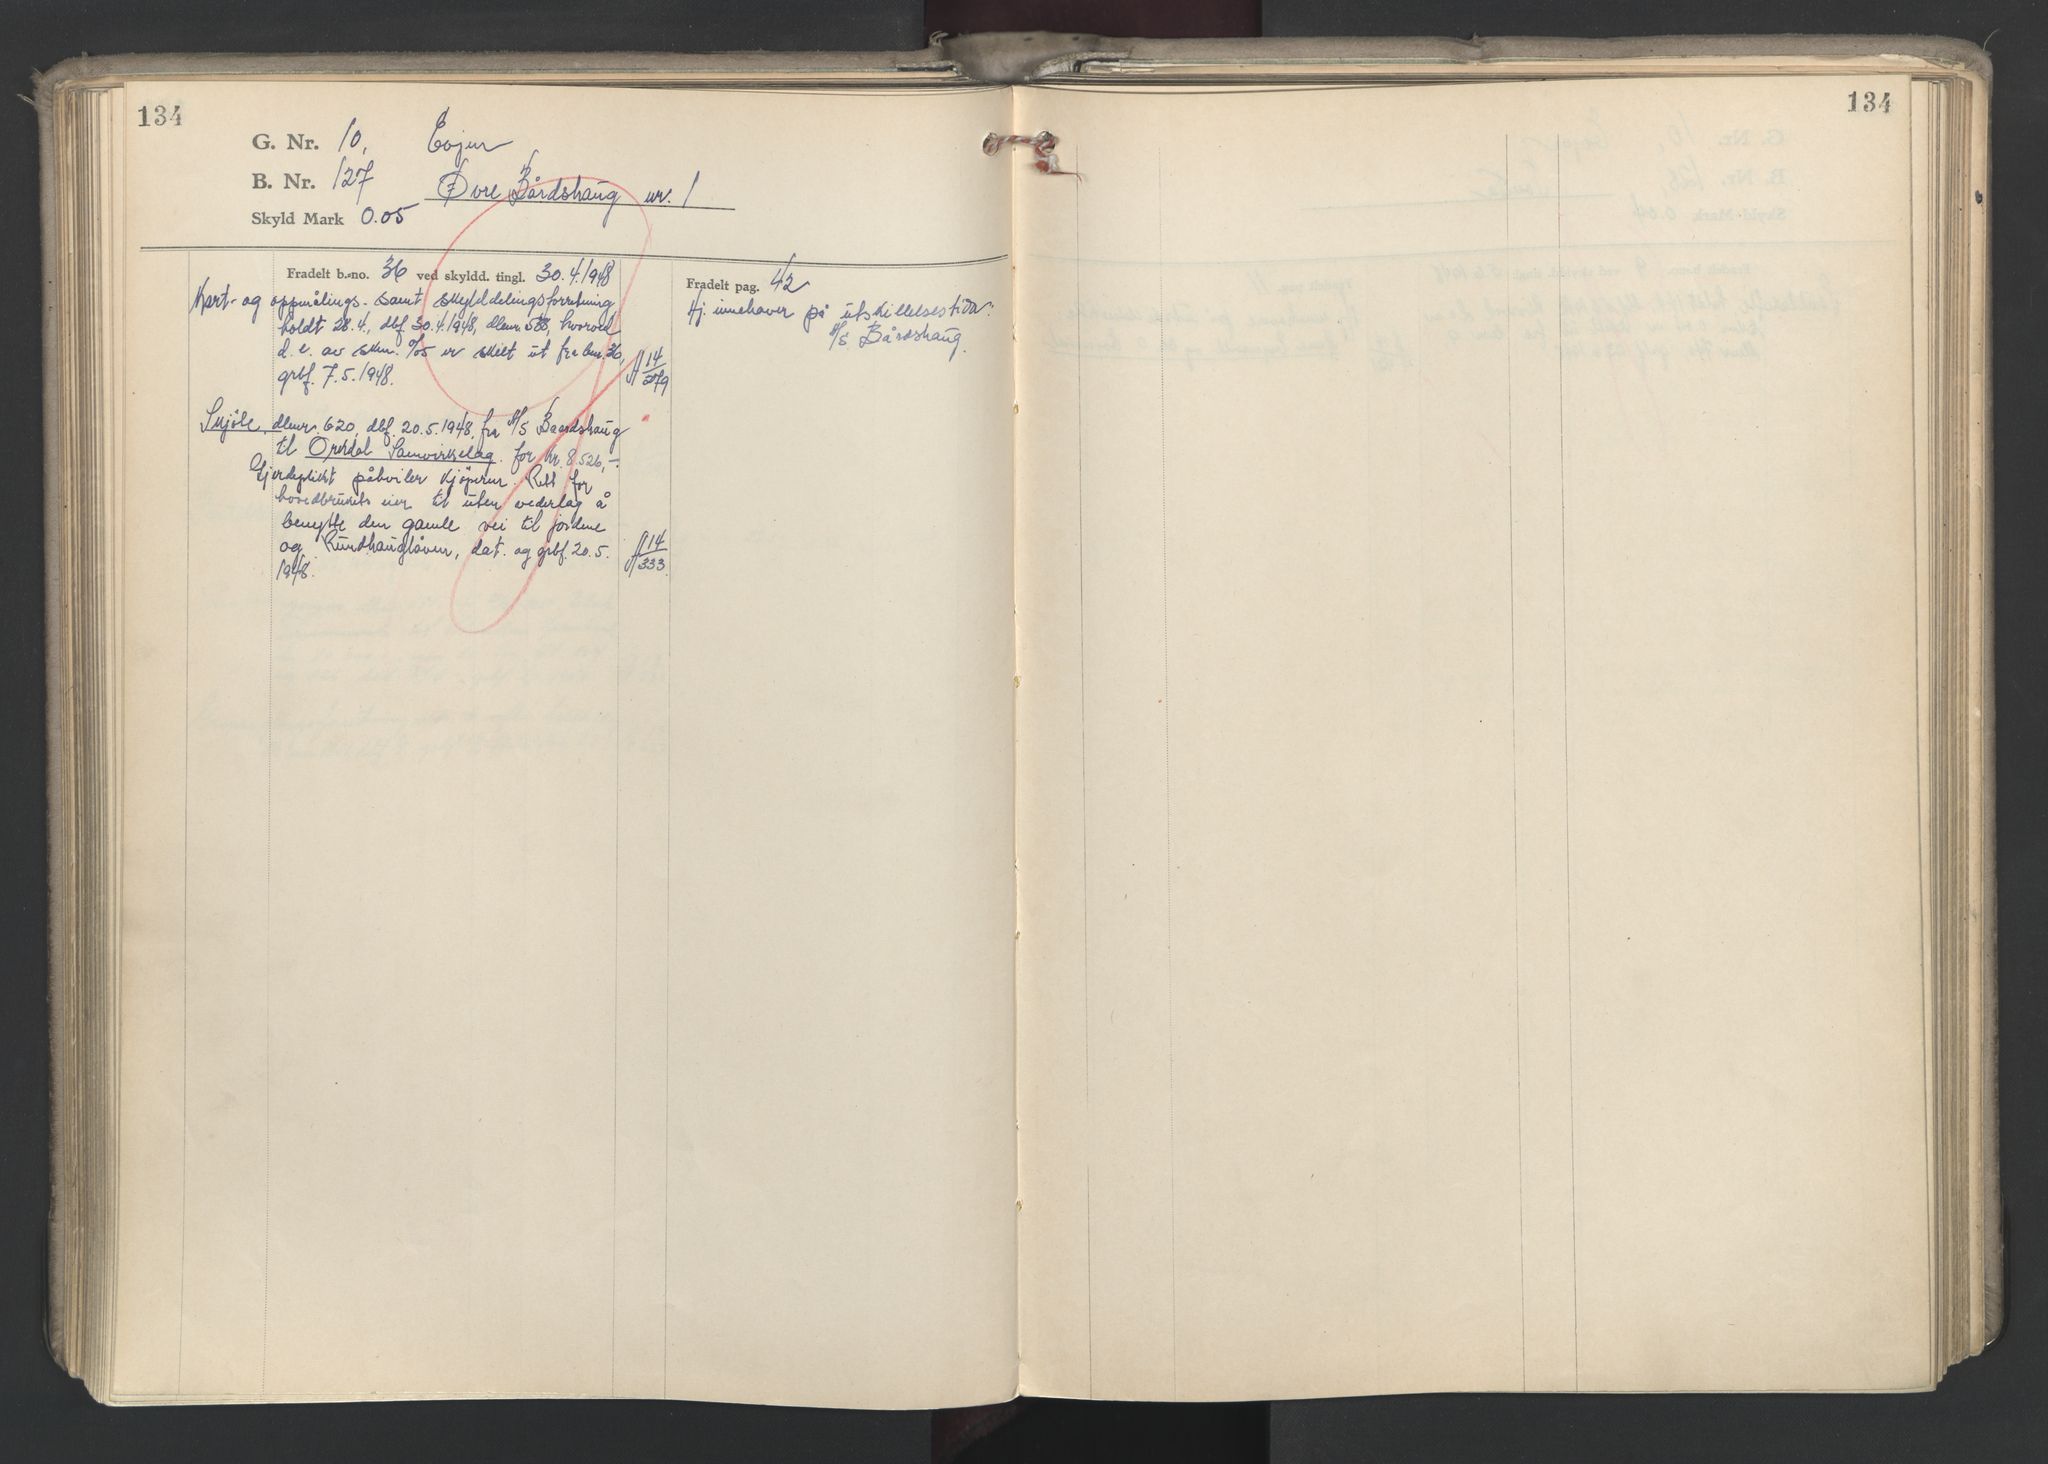 134
G. Nr. 10, Evjen
B. Nr. 127 Øvre Bårdshaug nr. 1
Skyld Mark 0.05
Fradelt b.-no. 36 ved skyldd. tingl. 30.4.1948
Kart- og oppmålings- samt skylddelingsforretning
holdt 28.4., dbf. 30.4.1948, dbnr. 588, hvorved
d. e. av skm. 0/05 er skilt ut fra bnr. 36,
grbf. 7.5.1948. 14/279
Skjöte, dbnr. 620, dbf. 20.5.1948, fra A/S Baardshaug
til Orkdal Samvirkelag for kr. 8.526,-.
Gjerdeplikt påhviler kjöperen. Rett for
hovedbrukets eier til uten vederlag å
benytte den gamle vei til jordene
og Rundhauglåven, dat. og grbf. 20.5.
1948. 14/333
Fradelt pag. 42
Hj. innehaver på utskillelsestida:
A/S Bårdshaug.
134